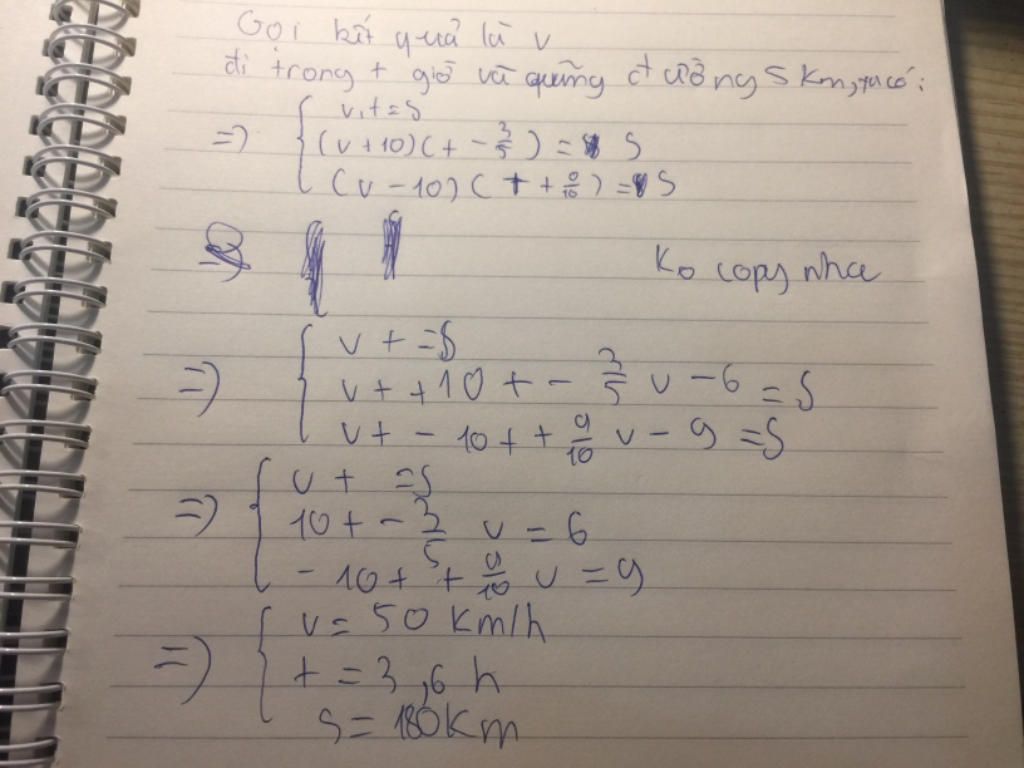 Gọi kết quả là v
đi trong t giờ và quãng đường S km, ta có:
=> { v.t = S
(v+10)(t - 3/5) = S
(v-10)(t + 9/10) = S
Ko copy nha
=> { vt = S
vt + 10t - 3/5 v - 6 = S
vt - 10t + 9/10 v - 9 = S
=> { vt = S
10t - 3/5 v = 6
-10t + 9/10 v = 9
=> { v = 50 km/h
t = 3,6 h
S = 180 km